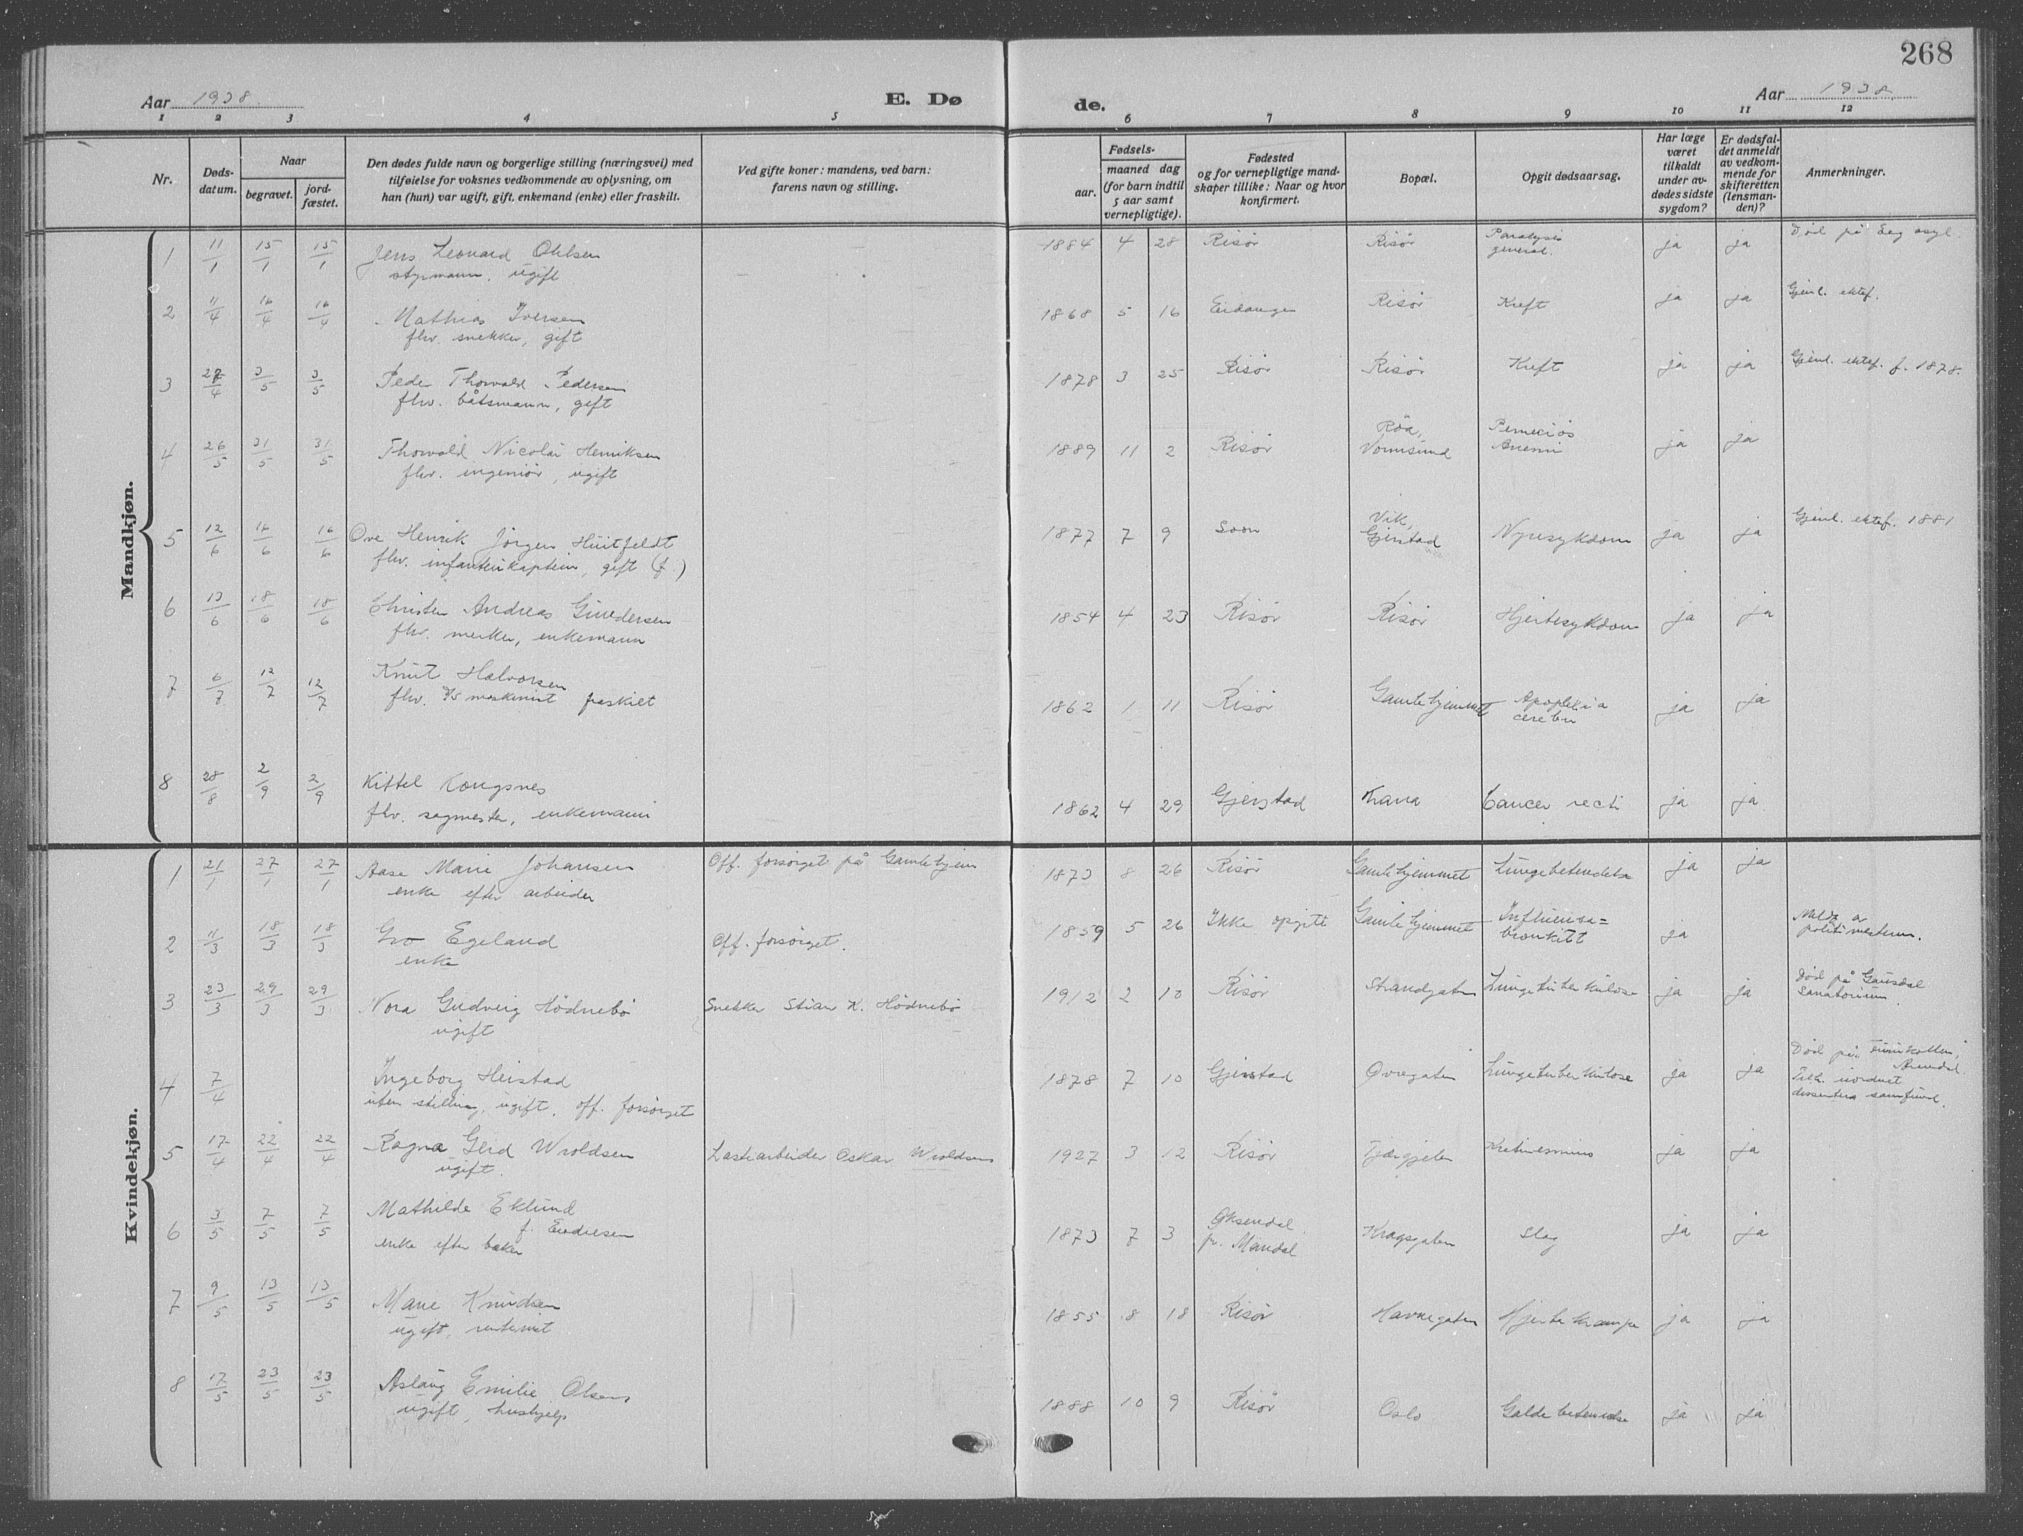 268
Aar 1938.
E. Dø
de.
Aar 1938.
1 2 3 4 5 6 7 8 9 10 11 12
Nr.
Døds-
datum.
Naar
begravet.
jord-
fæstet.
Den dødes fulde navn og borgerlige stilling (næringsvei) med
tilføielse for voksnes vedkommende av oplysning, om
han (hun) var ugift, gift, enkemand (enke) eller fraskilt.
Ved gifte koner: mandens, ved barn:
farens navn og stilling.
Fødsels-
aar.
maaned dag
(for barn indtil
5 aar samt
vernepligtige).
Fødested
og for vernepligtige mand-
skaper tillike: Naar og hvor
konfirmert.
Bopæl.
Opgit dødsaarsag.
Har læge
været
tilkaldt
under av-
dødes sidste
sygdom?
Er dødsfal-
det anmeldt
av vedkom-
mende for
skifteretten
(lensman-
den)?
Anmerkninger.
Mandkjøn.
1 11/1 15/1 15/1 Jens Leonard Ohlsen 1884 4 28 Risør Risør Paralysis ja ja Død på
styrmann, ugift general.
2 11/4 16/4 16/4 Mathias Iversen 1868 5 16 Eidanger Risør Kreft ja ja Gjenl. ektef.
fhv. snekker, gift
3 27/4 3/5 3/5 Peder Thorvald Pedersen 1878 3 25 Risør Risør Kreft ja ja Gjenl. ektef. f. 1878.
fhv. båtsmann, gift
4 26/5 31/5 31/5 Thorvald Nicolai Henriksen 1889 11 2 Risør Røa, Perniciøs ja ja
fhv. ingeniør, ugift Anemi
5 12/6 16/6 16/6 Ove Henrik Jørgen Huitfeldt 1877 7 9 Soon Vik, Gjerstad Nyresykdom ja ja Gjenl. ektef. 1881
fhv. infanterikaptein, gift (f.)
6 13/6 18/6 18/6 Christen Andreas 1854 4 23 Risør Risør Hjertesykdom ja ja
fhv. merker, enkemann
7 6/7 12/7 12/7 Knut Halvorsen 1862 1 11 Risør Gamlehjemmet Apoplexia ja ja
fhv. maskinist fraskilt cerebri
8 28/8 2/9 2/9 Kittel Kongsnes 1862 4 29 Gjerstad Krana Cancer recti ja ja
fhv. sagmester, enkemann
Kvindekjøn.
1 21/1 27/1 27/1 Aase Marie Johansen Off. forsørget på Gamlehjem 1873 8 26 Risør Gamlehjemmet Lungebetendelse ja ja
enke efter arbeider
2 11/3 18/3 18/3 Gro Egeland Off. forsørget. 1859 5 26 Ikke opgitt Gamlehjemmet Influensa= ja Meldt av
enke bronkitt politimesteren.
3 23/3 29/3 29/3 Nora Gudveig Hødnebø Snekker Stian K. Hødnebø 1912 2 10 Risør Strandgaten Lungetuberkulose ja ja Død på Gausdal
ugift sanatorium.
4 7/4 Ingeborg Heistad 1878 7 10 Gjerstad Øvregaten Lungetuberkulose ja ja Død på
uten stilling, ugift, off. forsørget Arendal
Tilh. uordnet
dissenter samfund.
5 17/4 22/4 22/4 Ragna Gerd Wroldsen Lastearbeider Oskar Wroldsen 1927 3 12 Risør Tjærgjelen Kretinismus ja ja
ugift.
6 3/5 7/5 7/5 Mathilde Eklund 1873 7 3 Øksendal Kragsgaten Slag ja ja
f. Endresen pr. Mandal
enke efter baker
7 9/5 13/5 13/5 Marie Knudsen 1855 8 18 Risør Havnegaten Hjertekrampe ja ja
ugift, rentenist
8 17/5 23/5 23/5 Aslaug Emilie Olsen 1888 10 9 Risør Oslo Galdebetendelse ja ja
ugift, hushjelp